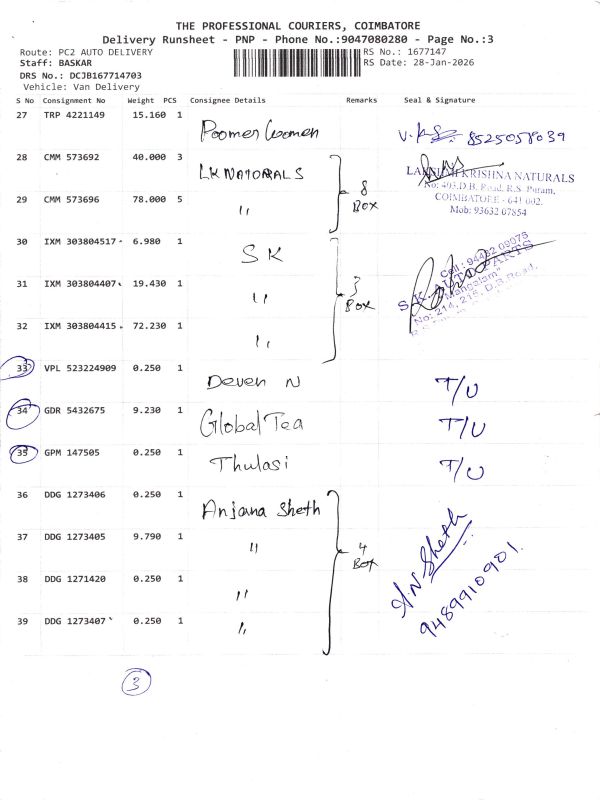 THE PROFESSIONAL COURIERS, COIMBATORE
Delivery Runsheet - PNP - Phone No.:9047080280 - Page No.:3
Route: PC2 AUTO DELIVERY RS No.: 1677147
Staff: BASKAR RS Date: 28-Jan-2026
DRS No.: DCJB167714703
Vehicle: Van Delivery
S No Consignment No Weight PCS Consignee Details Remarks Seal & Signature
27 TRP 4221149 15.160 1 Poomer Women 8525058039
28 CMM 573692 40.000 3 LK NATORALS
LAKSHMI KRISHNA NATURALS
No: 403,D.B. Road, R.S. Puram,
COIMBATORE - 641 002.
Mob: 93632 07854
29 CMM 573696 78.000 5 " 8 BOX
30 IXM 303804517 6.980 1 SK
31 IXM 303804407 19.430 1 " 3 BOX
Cell: 94432 09078
S.K. AUTO PARTS
"Mangalam"
No: 214, 215, D.B.Road,
32 IXM 303804415 72.230 1 "
33 VPL 523224909 0.250 1 Deven N T/U
34 GDR 5432675 9.230 1 Global Tea T/U
35 GPM 147505 0.250 1 Thulasi T/U
36 DDG 1273406 0.250 1 Anjana Sheth
37 DDG 1273405 9.790 1 " 4 BOX A.N Sheth
38 DDG 1271420 0.250 1 " 9489910901
39 DDG 1273407 0.250 1 "
3